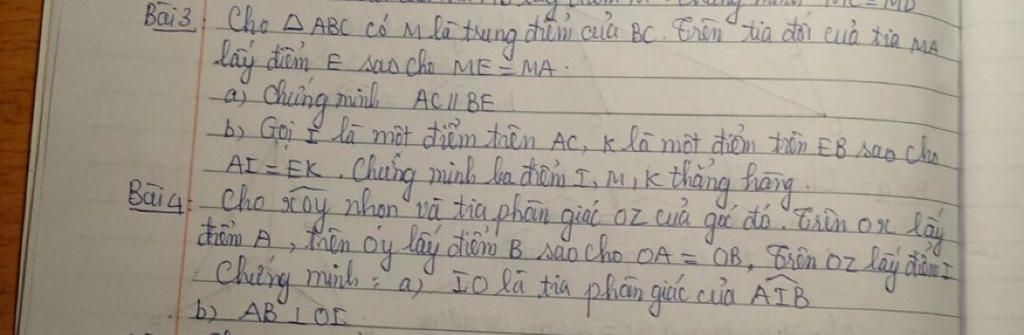 MC = MD
Bài 3: Cho △ ABC có M là trung điểm của BC. Trên tia đối của tia MA
lấy điểm E sao cho ME = MA.
a) Chứng minh AC // BE
b) Gọi I là một điểm trên AC, K là một điểm trên EB sao cho
AI = EK. Chứng minh ba điểm I, M, K thẳng hàng.
Bài 4: Cho xOy nhọn và tia phân giác OZ của góc đó. Trên Ox lấy
điểm A, trên Oy lấy điểm B sao cho OA = OB, Trên OZ lấy điểm I
Chứng minh: a) IO là tia phân giác của AIB
b) AB ⊥ OI.